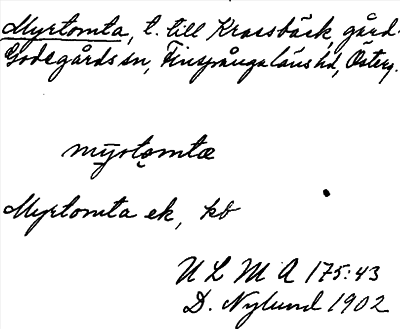 Myrtomta, t. till Krassbäck, gård.
Godegårds sn, Finspångaläns hd, Österg.
mỵrtọmtæ
Myrtomta ek, kb
U L M A 175:43
D. Nylund 1902